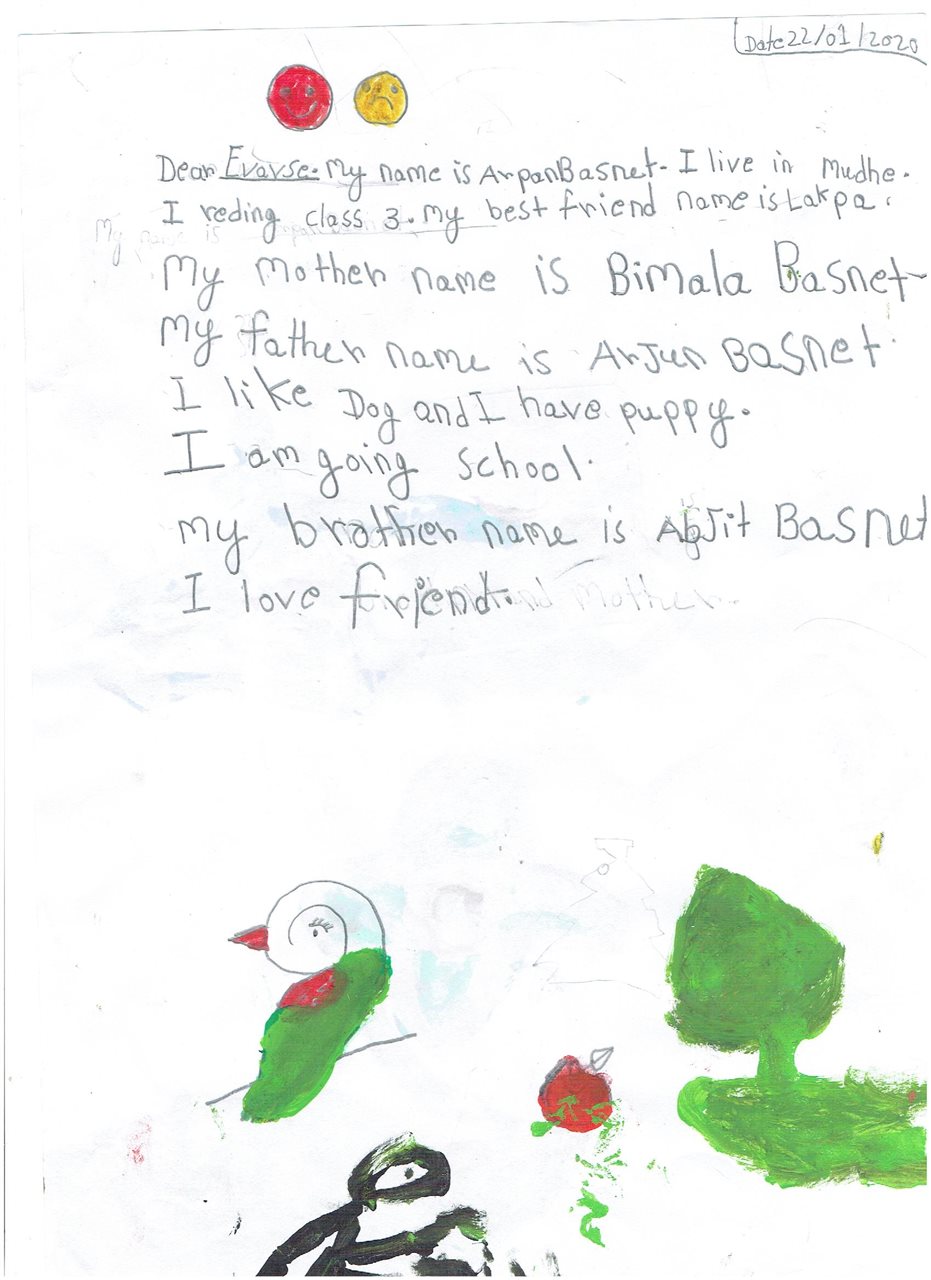 Date 22/01/2020
Dear Evarse. My name is Arpan Basnet. I live in Mudhe.
I reding class 3. my best friend name is Lakpa.
My mother name is Bimala Basnet
My father name is Arjun Basnet.
I like Dog and I have puppy.
I am going school.
my brather name is Abjit Basnet
I love friend.